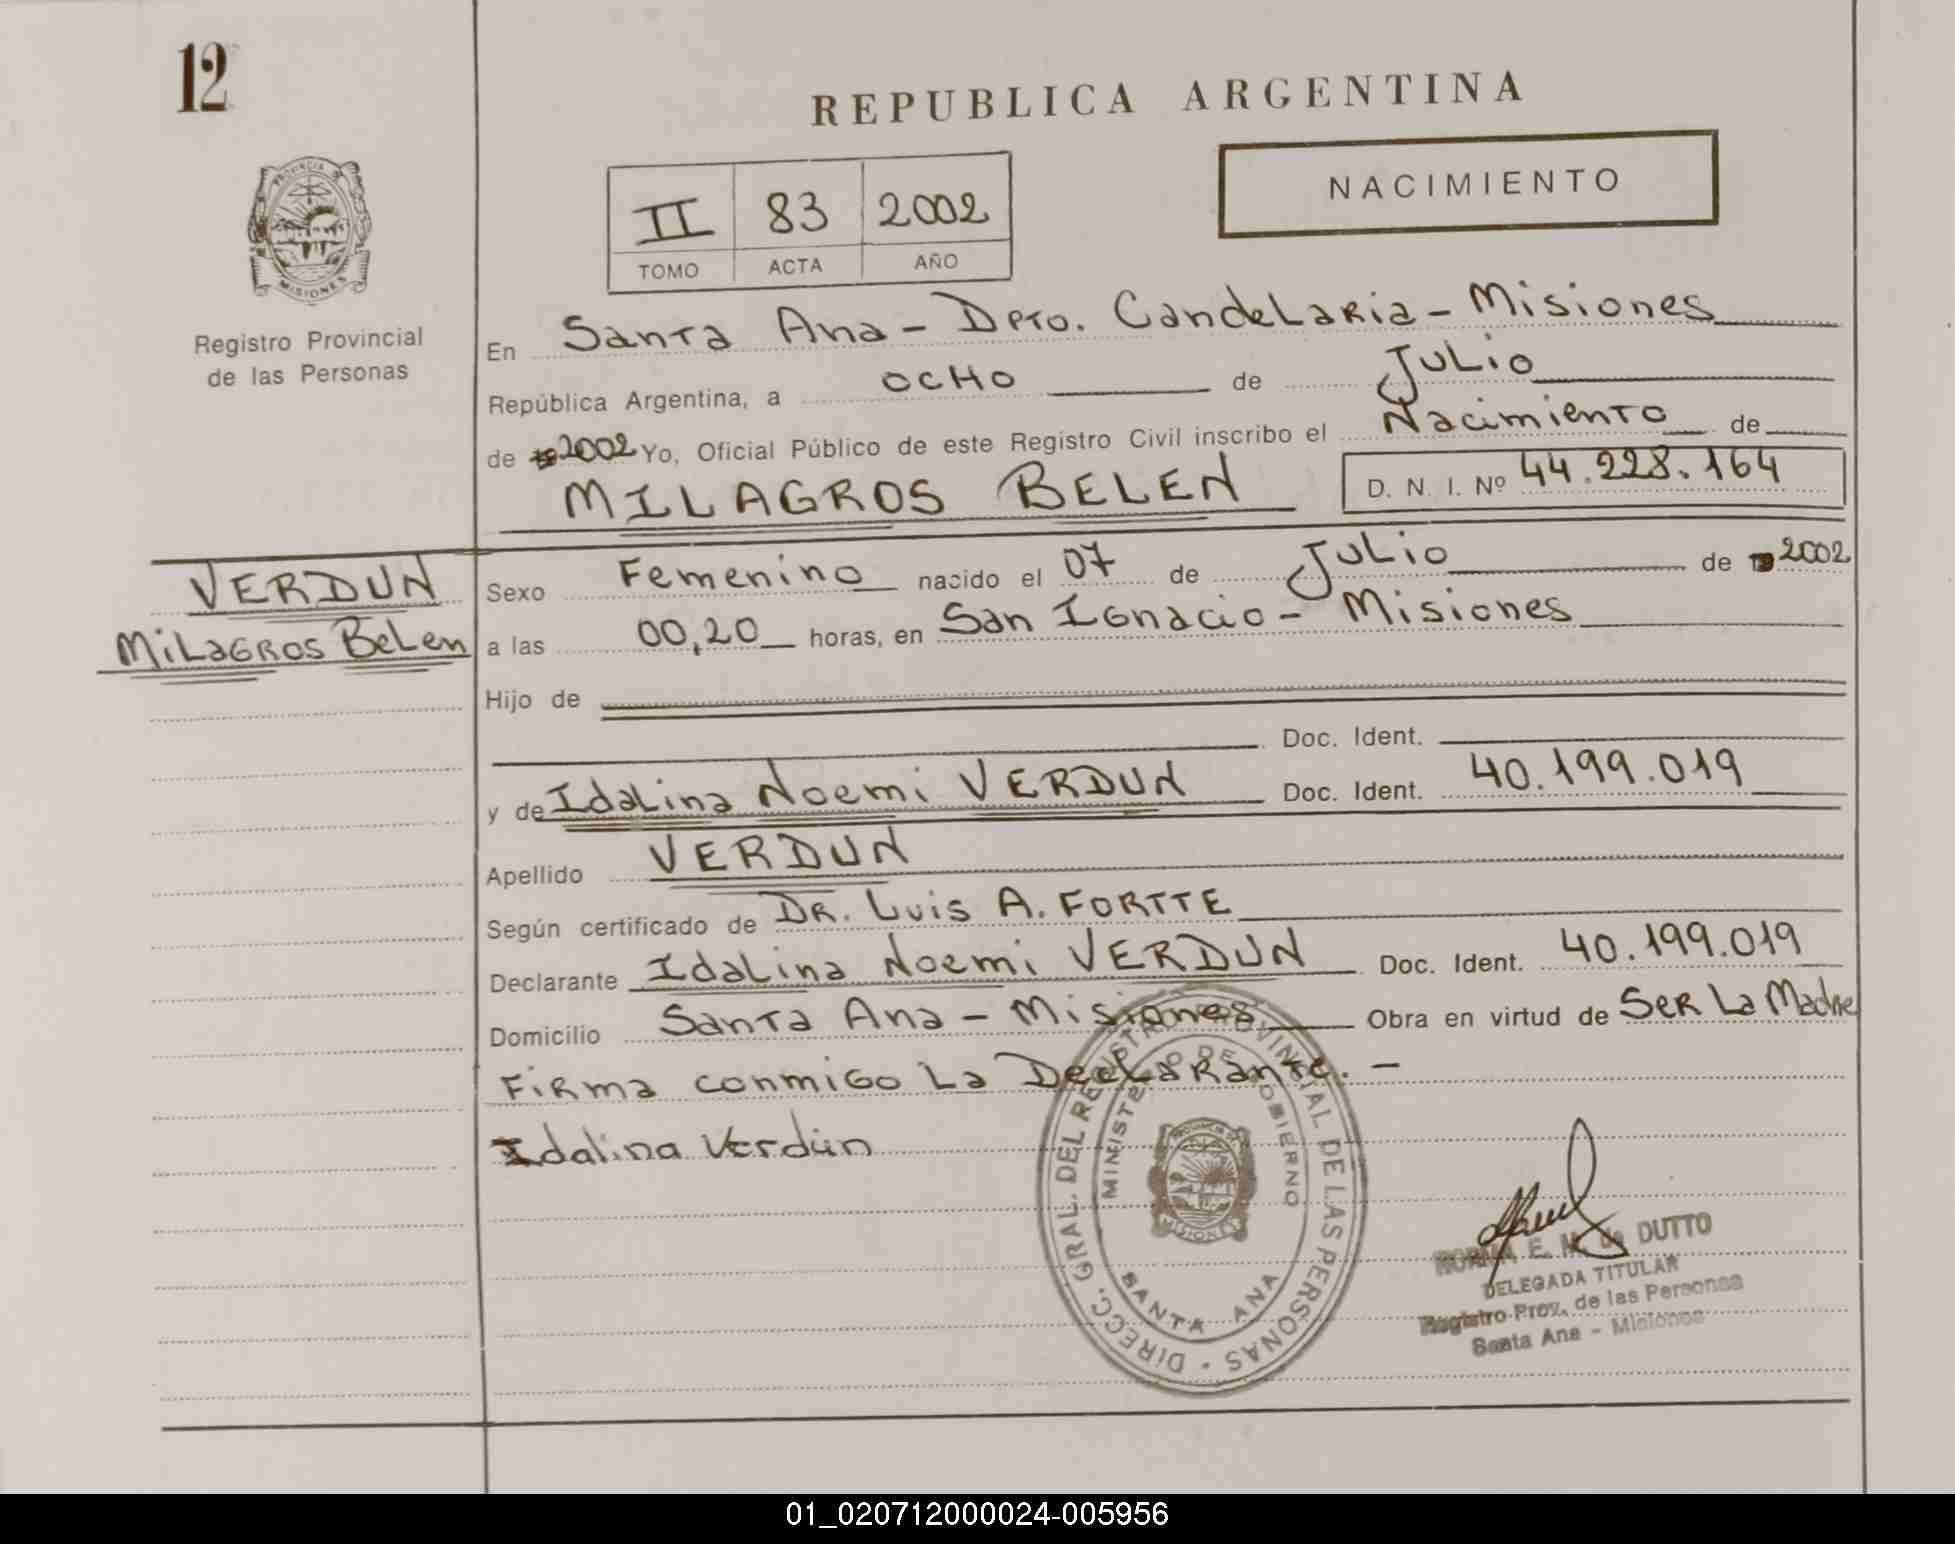 12
REPUBLICA ARGENTINA
NACIMIENTO
II 83 2002
TOMO ACTA AÑO
PROVINCIA DE
MISIONES
Registro Provincial
de las Personas
En Santa Ana - Dpto. Candelaria - Misiones
República Argentina, a OCHO de Julio
de 2002 Yo, Oficial Público de este Registro Civil inscribo el Nacimiento de
MILAGROS BELEN D. N. I. Nº 44.228.164
VERDUN
Milagros Belen
Sexo Femenino nacido el 07 de Julio de 2002
a las 00,20 horas, en San Ignacio - Misiones
Hijo de
Doc. Ident.
y de Idalina Noemi VERDUN Doc. Ident. 40.199.019
Apellido VERDUN
Según certificado de DR. Luis A. FORTTE
Declarante Idalina Noemi VERDUN Doc. Ident. 40.199.019
Domicilio Santa Ana - Misiones Obra en virtud de Ser La Madre
Firma conmigo La Declarante. -
Idalina Verdún
DIRECC. GRAL. DEL REGISTRO PROVINCIAL DE LAS PERSONAS
MINISTERIO DE GOBIERNO
PROVINCIA DE
MISIONES
SANTA ANA
NORMA E. M. de DUTTO
DELEGADA TITULAR
Registro Prov. de las Personas
Santa Ana - Misiones
01_020712000024-005956